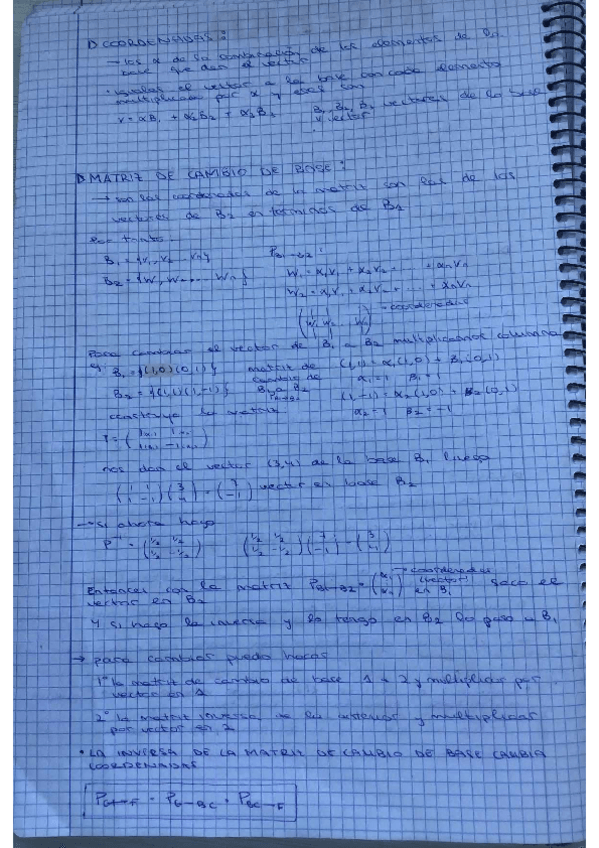 ▷ COORDENADAS:
→ los α de la combinación de los elementos de la
base que dan el vector
· igualas el vector a la base con cada elemento
multiplicado por α y esos son
v = αB₁ + α₂B₂ + α₃B₃ B₁, B₂, B₃ vectores de la base
v vector
▷ MATRIZ DE CAMBIO DE BASE:
→ son las coordenadas de la matriz son las de los
vectores de B₂ en términos de B₂
Por tanto:
B₁ = {v₁, v₂ ... vₙ} P_B₁→B₂:
B₂ = {w₁, w₂ ... wₙ} w₁ = α₁v₁ + α₂v₂ + ... + αₙvₙ
w₂ = α₁v₁ + α₂v₂ + ... + αₙvₙ
(w₁ w₂ ... wₙ) → coordenadas
Para cambiar el vector de B₁ a B₂ multiplicamos columna
ej B₁ = {(1,0)(0,1)} matriz de (1,1) = α₁(1,0) + β₁(0,1)
cambio de α₁ = 1 β₁ = 1
B₂ = {(1,1)(1,-1)} B₁ a B₂ (1,-1) = α₂(1,0) + β₂(0,1)
P_B₁→B₂ α₂ = 1 β₂ = -1
construyo la matriz
nos dan el vector (3,4) de la base B₁ luego
(1 1 / 1 -1)(3 / 4) = (7 / -1) vector en base B₂
→ si ahora hago
P⁻¹ = (1/2 1/2 / 1/2 -1/2) (1/2 1/2 / 1/2 -1/2)(7 / -1) = (3 / 4)
Entonces con la matriz P_B₁→B₂ = (α₁ / αₙ) → coordenadas (vector) en B₁ saco el
vector en B₂
Y si hago la inversa y lo tengo en B₂ lo paso a B₁
→ para cambiar puedo hacer
1º la matriz de cambio de base 1 a 2 y multiplicar por
vector en 1
2º la matriz inversa de la anterior y multiplicar
por vector en 2
· LA INVERSA DE LA MATRIZ DE CAMBIO DE BASE CAMBIA
COORDENADAS
P_G→F = P_G→BC · P_BC→F